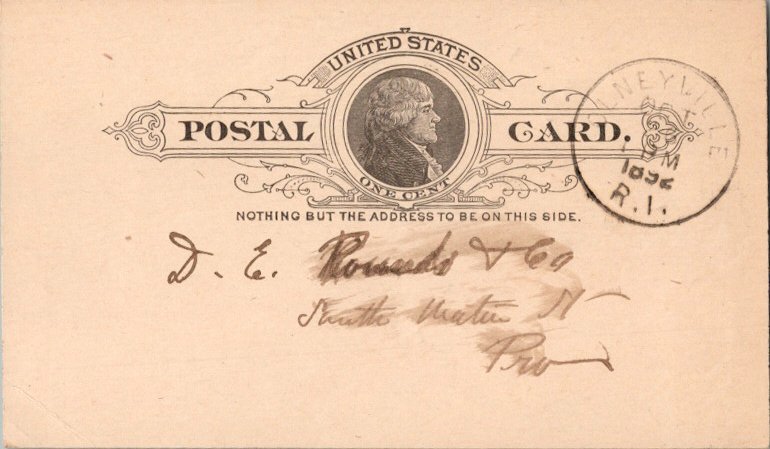 UNITED STATES
POSTAL CARD.
ONE CENT
NOTHING BUT THE ADDRESS TO BE ON THIS SIDE.
OLNEYVILLE
OCT
1 PM
1892
R.I.
D. E. Rounds & Co
South Water St
Pro